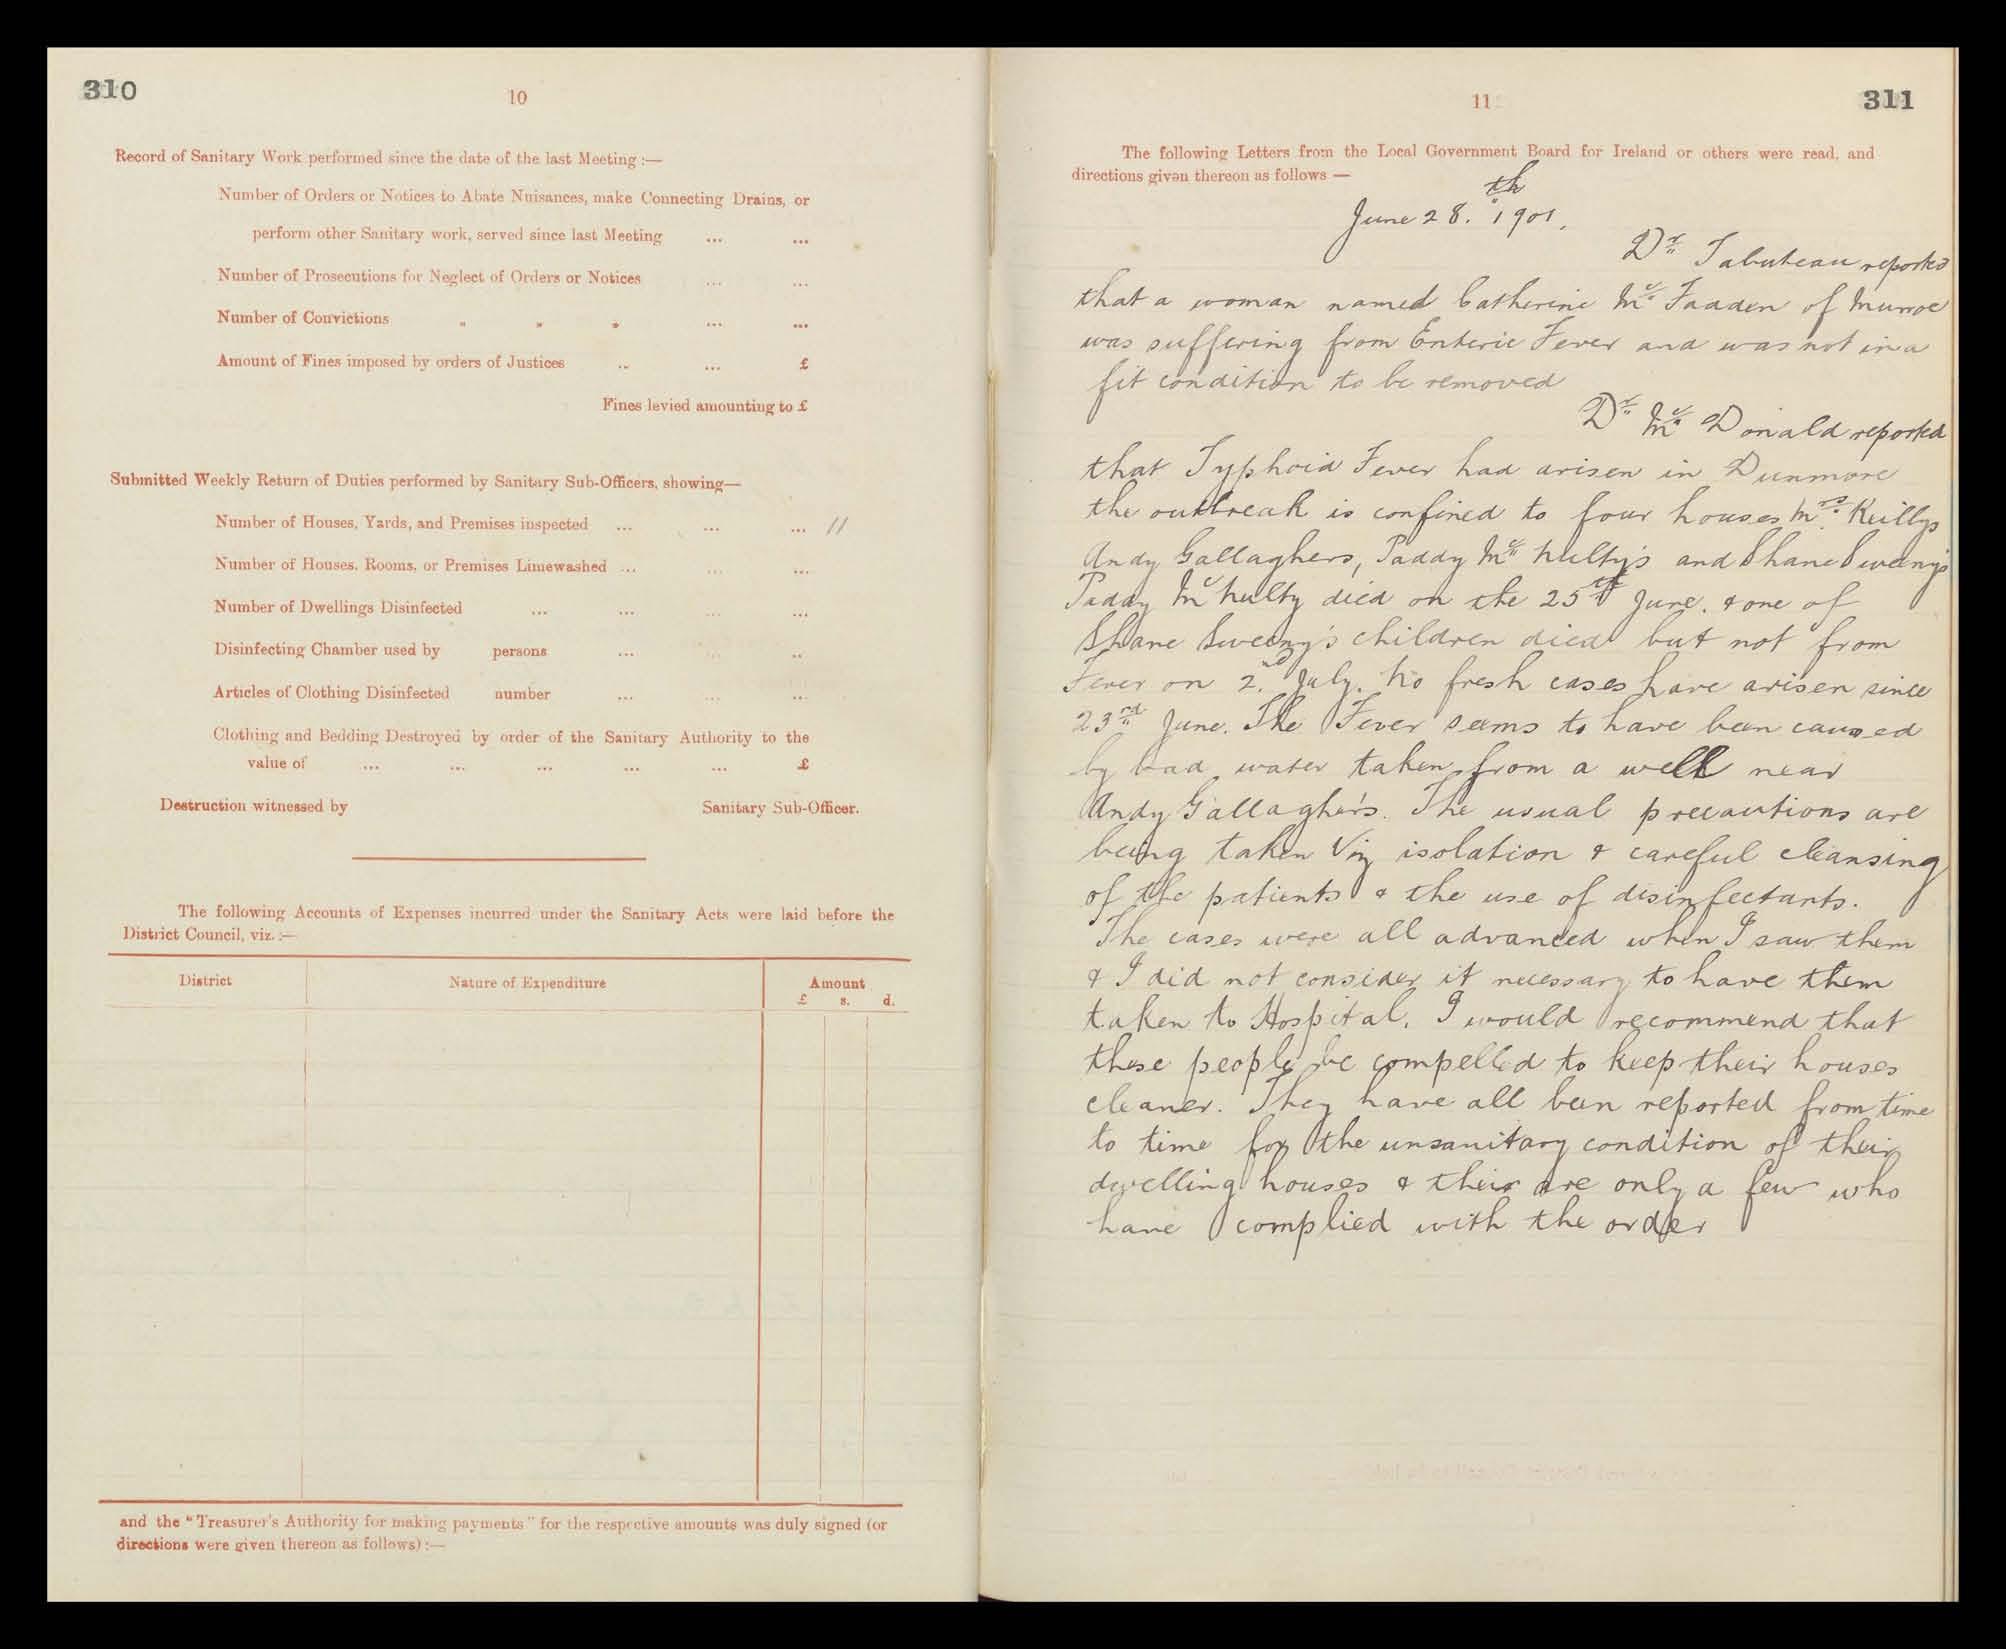 310
10
Record of Sanitary Work performed since the date of the last Meeting :—
Number of Orders or Notices to Abate Nuisances, make Connecting Drains, or
perform other Sanitary work, served since last Meeting ... ...
Number of Prosecutions for Neglect of Orders or Notices ... ...
Number of Convictions " " " ... ...
Amount of Fines imposed by orders of Justices .. ... £
Fines levied amounting to £
Submitted Weekly Return of Duties performed by Sanitary Sub-Officers, showing—
Number of Houses, Yards, and Premises inspected ... ... ... 11
Number of Houses. Rooms, or Premises Limewashed ... ... ...
Number of Dwellings Disinfected ... ... ... ...
Disinfecting Chamber used by persons ... ... ..
Articles of Clothing Disinfected number ... ... ...
Clothing and Bedding Destroyed by order of the Sanitary Authority to the
value of ... ... ... ... ... £
Destruction witnessed by Sanitary Sub-Officer.
The following Accounts of Expenses incurred under the Sanitary Acts were laid before the
District Council, viz. :—
District Nature of Expenditure Amount
£ s. d.
and the "Treasurer's Authority for making payments" for the respective amounts was duly signed (or
directions were given thereon as follows) :—
11
311
The following Letters from the Local Government Board for Ireland or others were read, and
directions given thereon as follows —
June 28.th 1901.
Dr Tabuteau reported
that a woman named Catherine Mc Fadden of Murroe
was suffering from Enteric Fever and was not in a
fit condition to be removed
Dr Mc Donald reported
that Typhoid Fever had arisen in Dunmore
the outbreak is confined to four houses Mrs. Keillys
Andy Gallaghers, Paddy Mc Nulty's and Shane Sweeny's
Paddy Mc Nulty died on the 25th June. & one of
Shane Sweeny's children died but not from
Fever on 2.nd July. No fresh cases have arisen since
23rd June. The Fever seems to have been caused
by bad water taken from a well near
Andy Gallagher's. The usual precautions are
being taken Viz isolation & careful cleansing
of the patients & the use of disinfectants.
The cases were all advanced when I saw them
& I did not consider it necessary to have them
taken to Hospital. I would recommend that
these people be compelled to keep their houses
cleaner. They have all been reported from time
to time for the unsanitary condition of their
dwelling houses & their are only a few who
have complied with the order